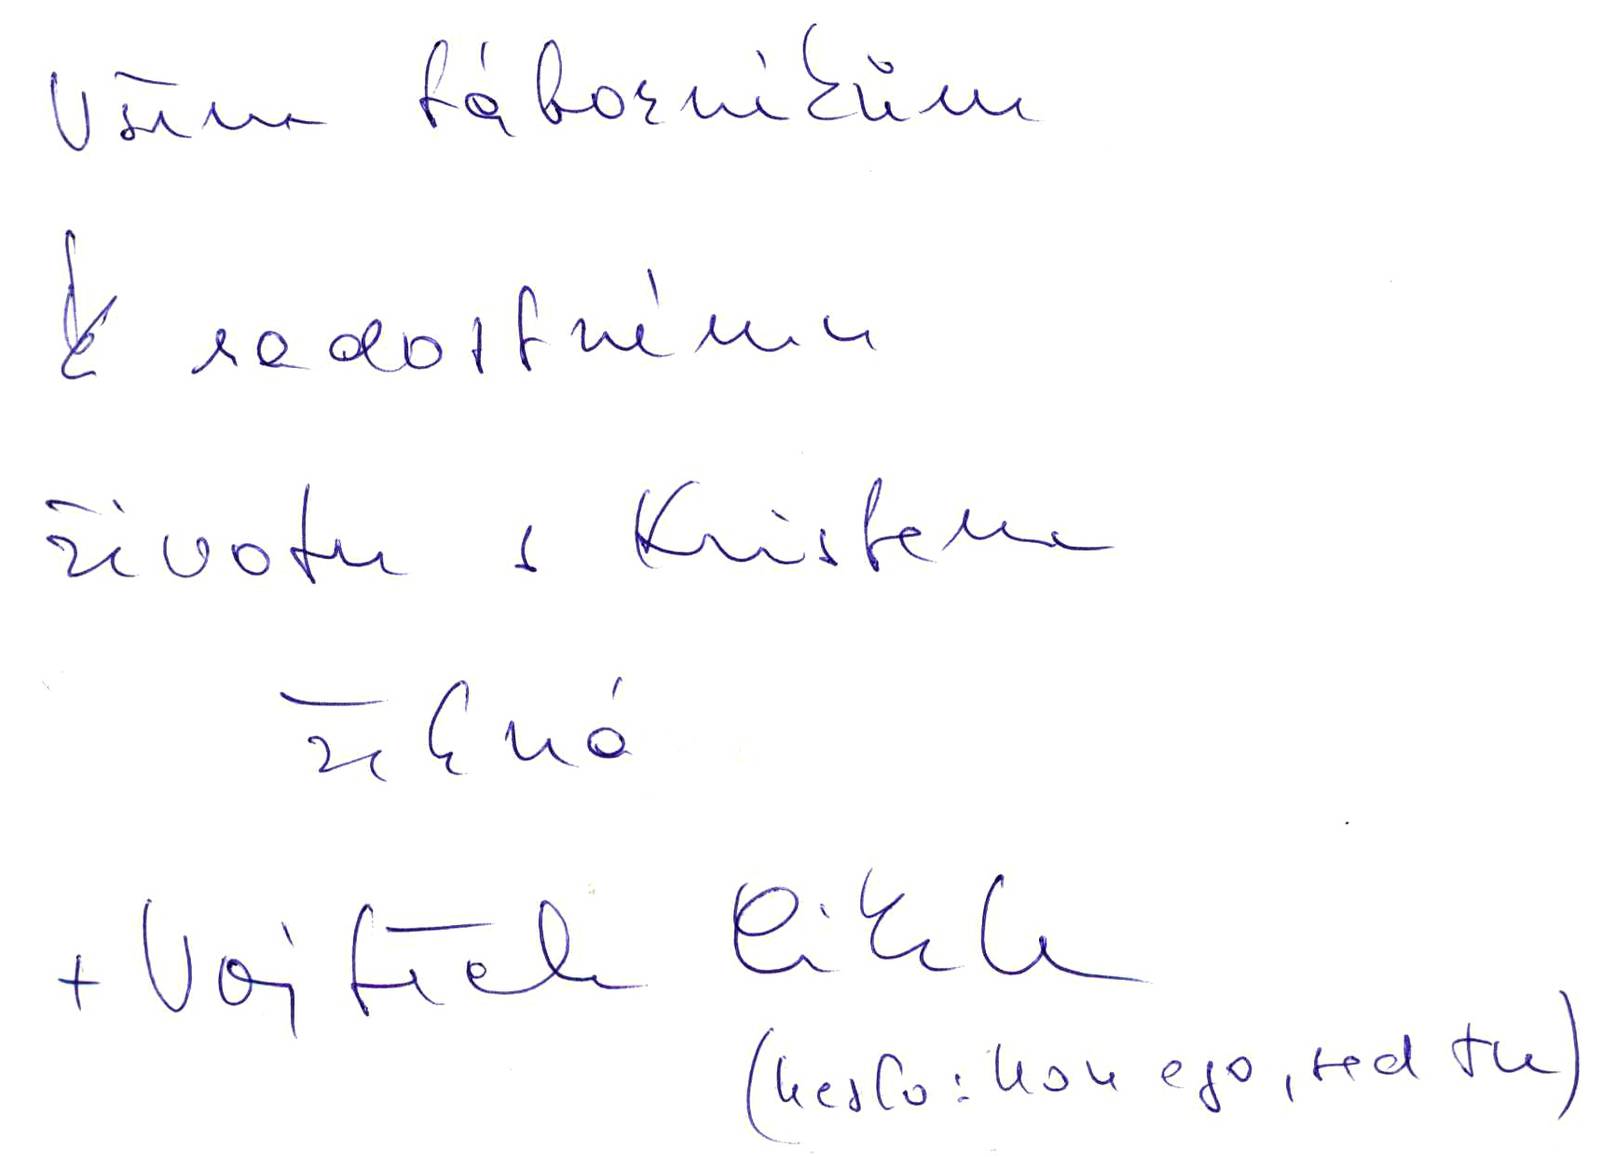 Všem táborníkům
k radostnému
životu s Kristem
žehná
+ Vojtěch Cikrle
(heslo: non ego, sed tu)